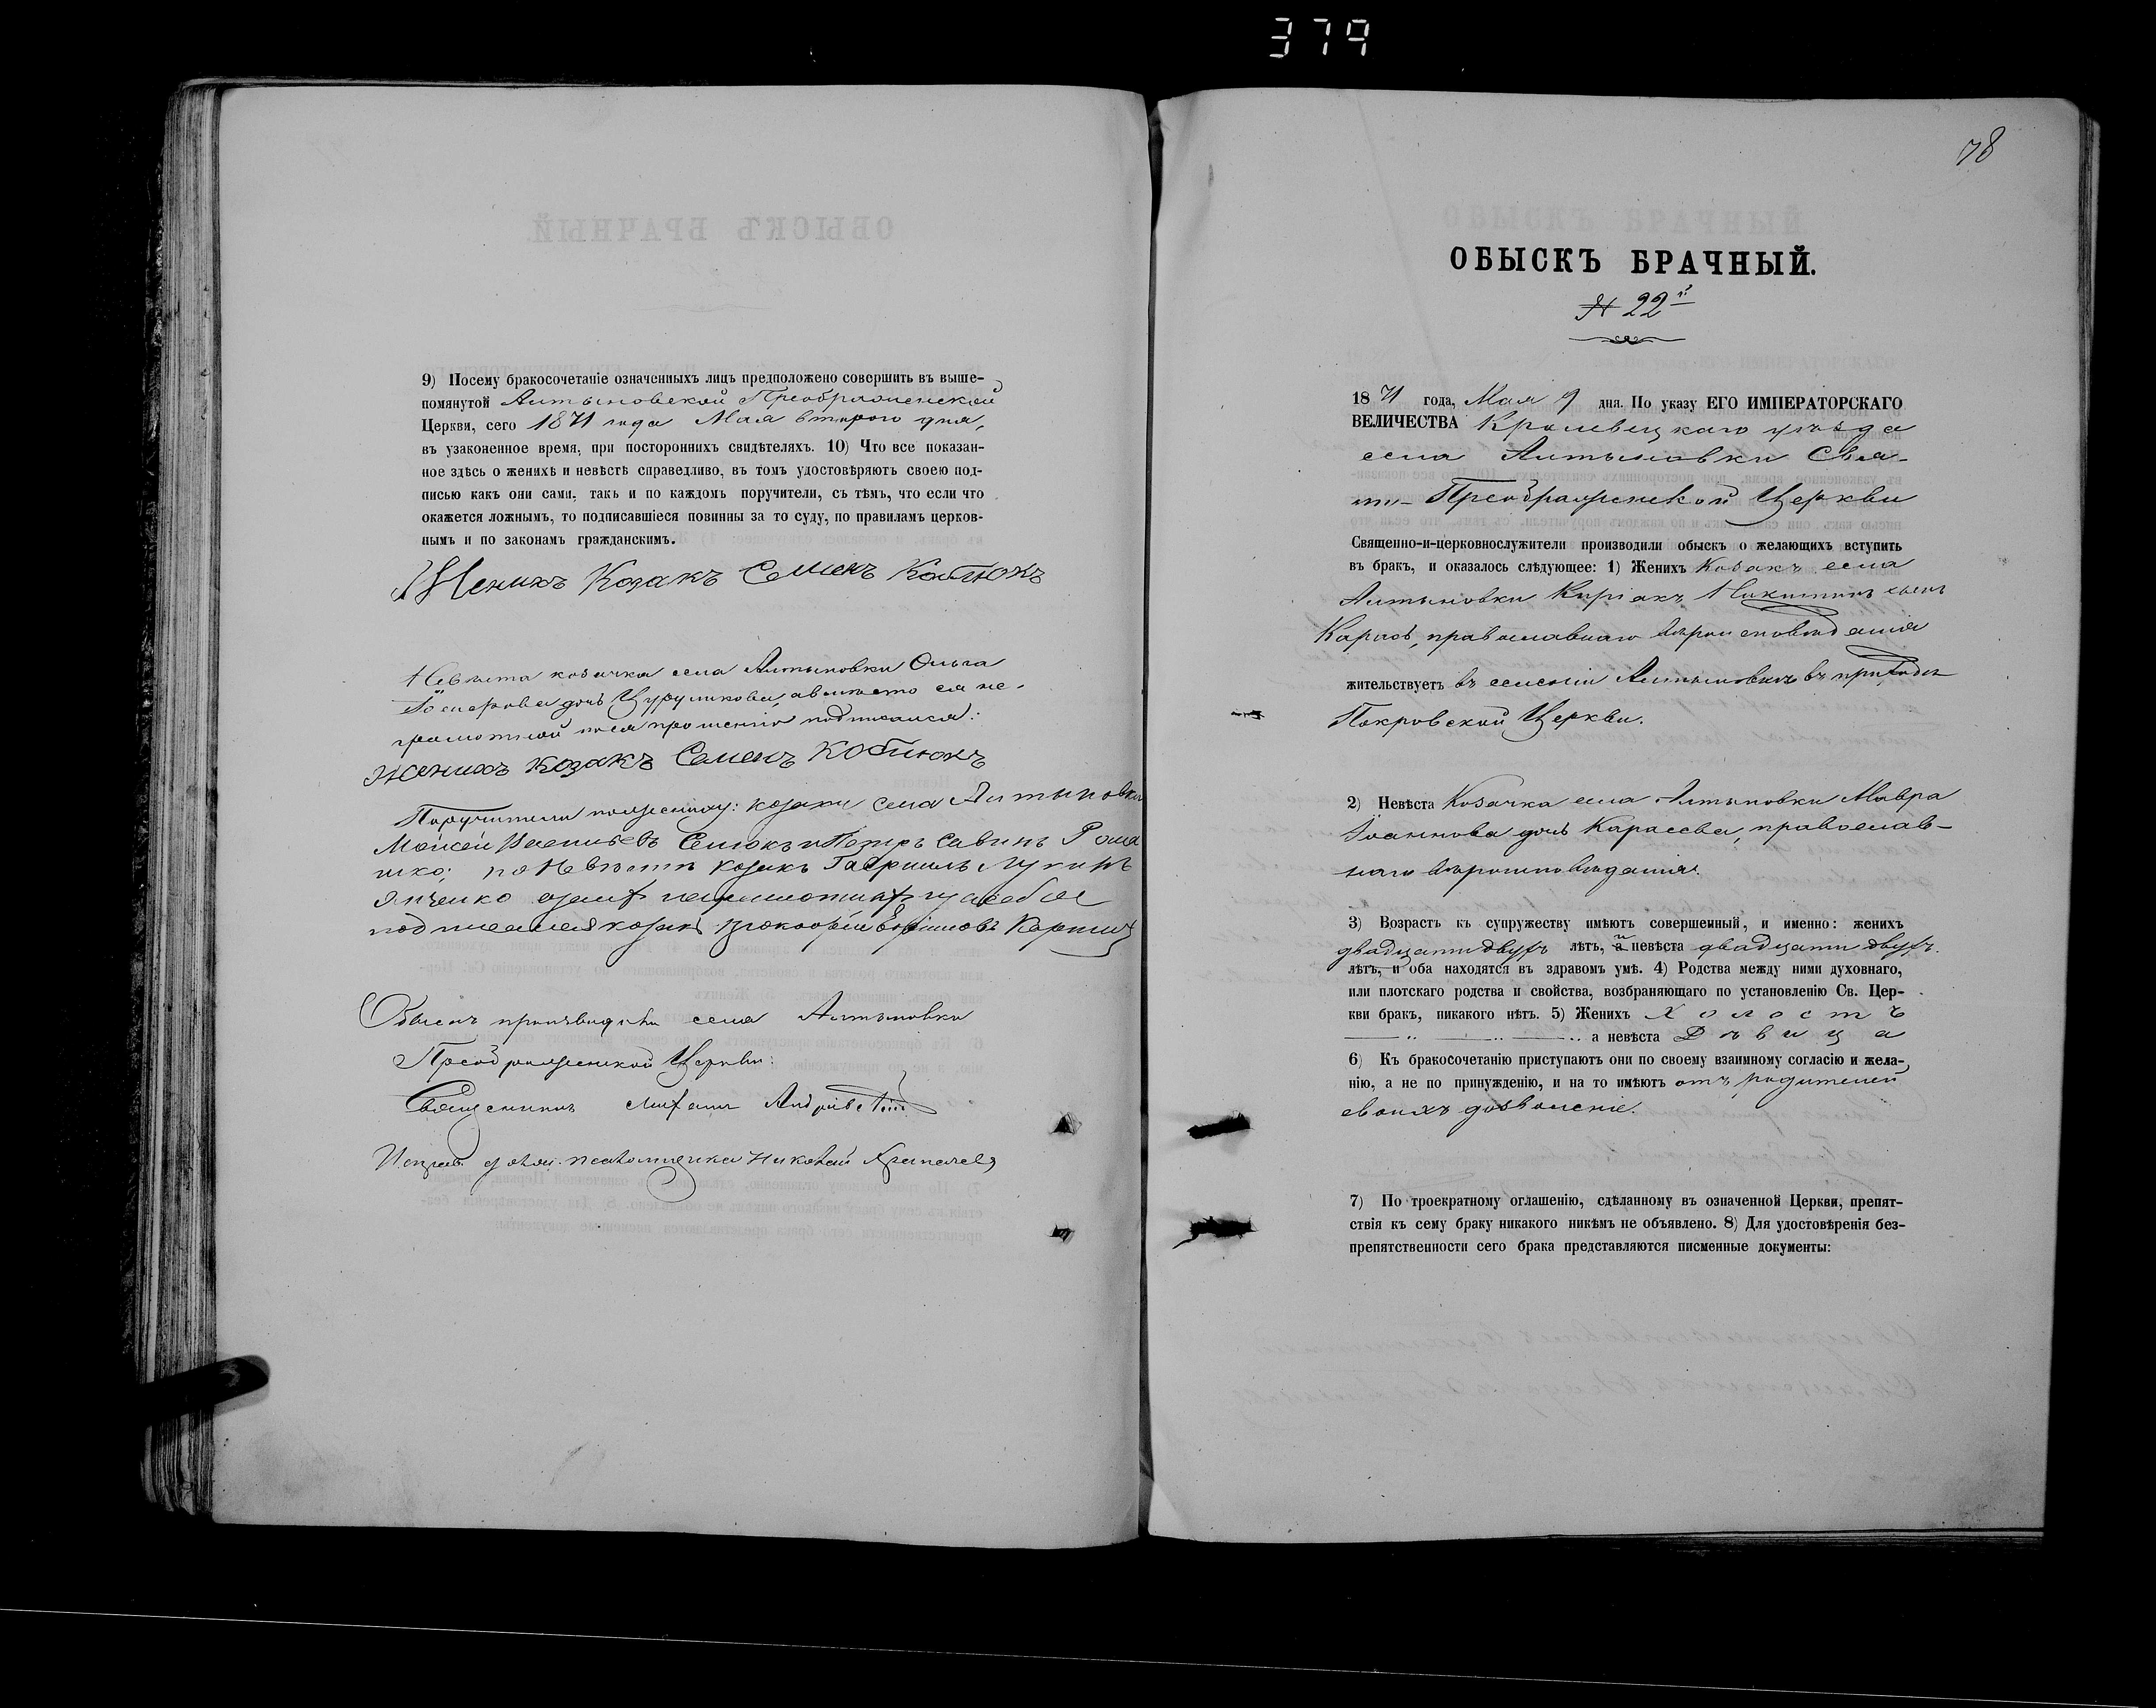 379
9) Посему бракосочетаніе означенныхъ лицъ предположено совершить въ выше-
помянутой Алтыновской Преображенской
Церкви, сего 1871 года Мая второго дня,
въ узаконенное время, при постороннихъ свидѣтеляхъ. 10) Что все показан-
ное здѣсь о женихѣ и невѣстѣ справедливо, въ томъ удостовѣряютъ своею под-
писью какъ они сами, такъ и по каждомъ поручители, съ тѣмъ, что если что
окажется ложнымъ, то подписавшіеся повинны за то суду, по правиламъ церков-
нымъ и по законамъ гражданскимъ.
Женихъ Козакъ Семенъ Костюкъ
Невѣста козачка села Алтыновки Ольга
дочь а вмѣсто ея не-
грамотной по ея прошенію подписался:
женихъ козакъ Семенъ Костюкъ
Поручители по женихѣ: козаки села Алтыновки
Моисей Васильевъ и Петръ Савинъ Рома
шко; по Невѣстѣ козакъ Гавріилъ Лукинъ
Янченко
подписался козакъ
Обыскъ производили села Алтыновки
Преображенской Церкви:
Священникъ Михаилъ
Николай
78
ОБЫСКЪ БРАЧНЫЙ.
№ 22й
1871 года, Мая 9 дня. По указу ЕГО ИМПЕРАТОРСКАГО
ВЕЛИЧЕСТВА Кролевецкаго уѣзда
села Алтыновки Свя-
то-Преображенской Церкви
Священно-и-церковнослужители производили обыскъ о желающихъ вступить
въ бракъ, и оказалось слѣдующее: 1) Женихъ Козакъ села
Алтыновки Киріакъ Никитинъ сынъ
Карпов, православнаго вѣроисповѣданія
жительствуетъ въ селеніи Алтыновкѣ въ приходѣ
Покровской Церкви.
2) Невѣста Козачка села Алтыновки Мавра
Іоаннова дочь Карасева, православ-
наго вѣроисповѣданія.
3) Возрастъ къ супружеству имѣютъ совершенный, и именно: женихъ
двадцати двухъ лѣтъ, а невѣста двадцати двухъ
лѣтъ, и оба находятся въ здравомъ умѣ. 4) Родства между ними духовнаго,
или плотскаго родства и свойства, возбраняющаго по установленію Св. Цер-
кви бракъ, никакого нѣтъ. 5) Женихъ Холостъ
а невѣста Дѣвица
6) Къ бракосочетанію приступаютъ они по своему взаимному согласію и жела-
нію, а не по принужденію, и на то имѣютъ отъ родителей
своихъ дозволеніе.
7) По троекратному оглашенію, сдѣланному въ означенной Церкви, препят-
ствія къ сему браку никакого никѣмъ не объявлено. 8) Для удостовѣренія без-
препятственности сего брака представляются писменные документы: